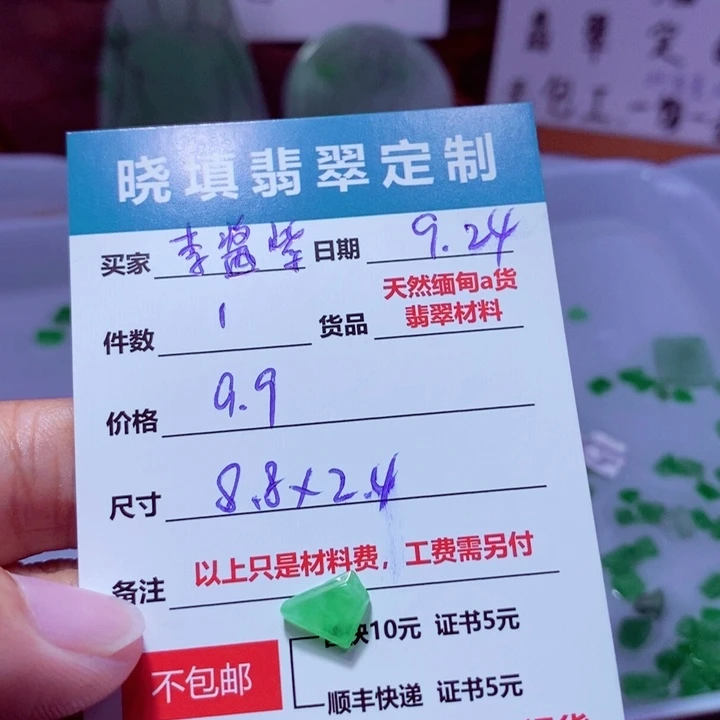 晓填翡翠定制
买家 李酱紫 日期 9.24
件数 1 货品 天然缅甸a货
翡翠材料
价格 9.9
尺寸 8.8×2.4
备注 以上只是材料费，工费需另付
10元 证书5元
不包邮
顺丰快递 证书5元
翠 定
包工